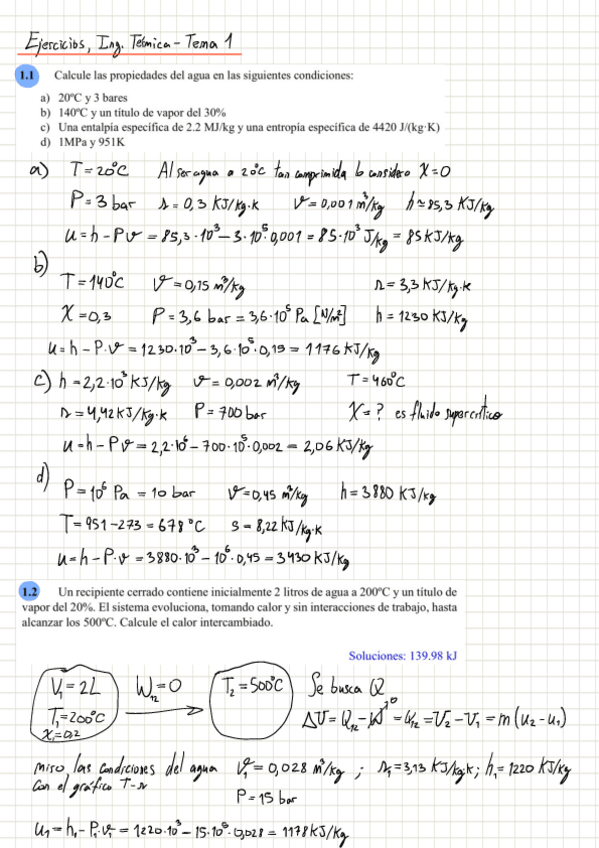 Ejercicios, Ing. Térmica - Tema 1
1.1 Calcule las propiedades del agua en las siguientes condiciones:
a) 20ºC y 3 bares
b) 140ºC y un título de vapor del 30%
c) Una entalpía específica de 2.2 MJ/kg y una entropía específica de 4420 J/(kg·K)
d) 1MPa y 951K
a) T = 20°C Al ser agua a 20°C tan comprimida lo considero X=0
P = 3 bar s = 0,3 KJ/kg·K v = 0,001 m³/kg h ≃ 85,3 KJ/kg
u = h - Pv = 85,3·10³ - 3·10⁵·0,001 = 85·10³ J/kg = 85 KJ/kg
b)
T = 140°C v = 0,15 m³/kg s = 3,3 KJ/kg·K
X = 0,3 P = 3,6 bar = 3,6·10⁵ Pa [N/m²] h = 1230 KJ/kg
u = h - P·v = 1230·10³ - 3,6·10⁵·0,15 = 1176 KJ/kg
c) h = 2,2·10³ KJ/kg v = 0,002 m³/kg T = 460°C
s = 4,42 KJ/kg·K P = 700 bar X = ? es fluido supercrítico
u = h - Pv = 2,2·10⁶ - 700·10⁵·0,002 = 2,06 KJ/kg
d)
P = 10⁶ Pa = 10 bar v = 0,45 m³/kg h = 3880 KJ/kg
T = 951 - 273 = 678 °C s = 8,22 KJ/kg·K
u = h - P·v = 3880·10³ - 10⁶·0,45 = 3430 KJ/kg
1.2 Un recipiente cerrado contiene inicialmente 2 litros de agua a 200ºC y un título de
vapor del 20%. El sistema evoluciona, tomando calor y sin interacciones de trabajo, hasta
alcanzar los 500ºC. Calcule el calor intercambiado.
Soluciones: 139.98 kJ
V₁ = 2L W₁₂ = 0 T₂ = 500°C Se busca Q
T₁ = 200°C ΔU = Q₁₂ - W⁰ = Q₁₂ = U₂ - U₁ = m(u₂ - u₁)
X₁ = 0,2
miro las condiciones del agua v₁ = 0,028 m³/kg ; s₁ = 3,13 KJ/kg·K ; h₁ = 1220 KJ/kg
con el gráfico T-s P = 15 bar
u₁ = h₁ - P₁·v₁ = 1220·10³ - 15·10⁵·0,028 = 1178 KJ/kg